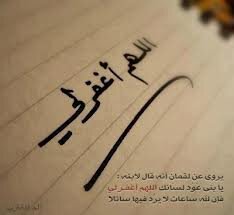 اللهم أغفر لي
يروى عن لقمان أنه قال لابنه :
يا بنى عود لسانك اللهم أغفر لي
فان لله ساعات لا يرد فيها سائلاً